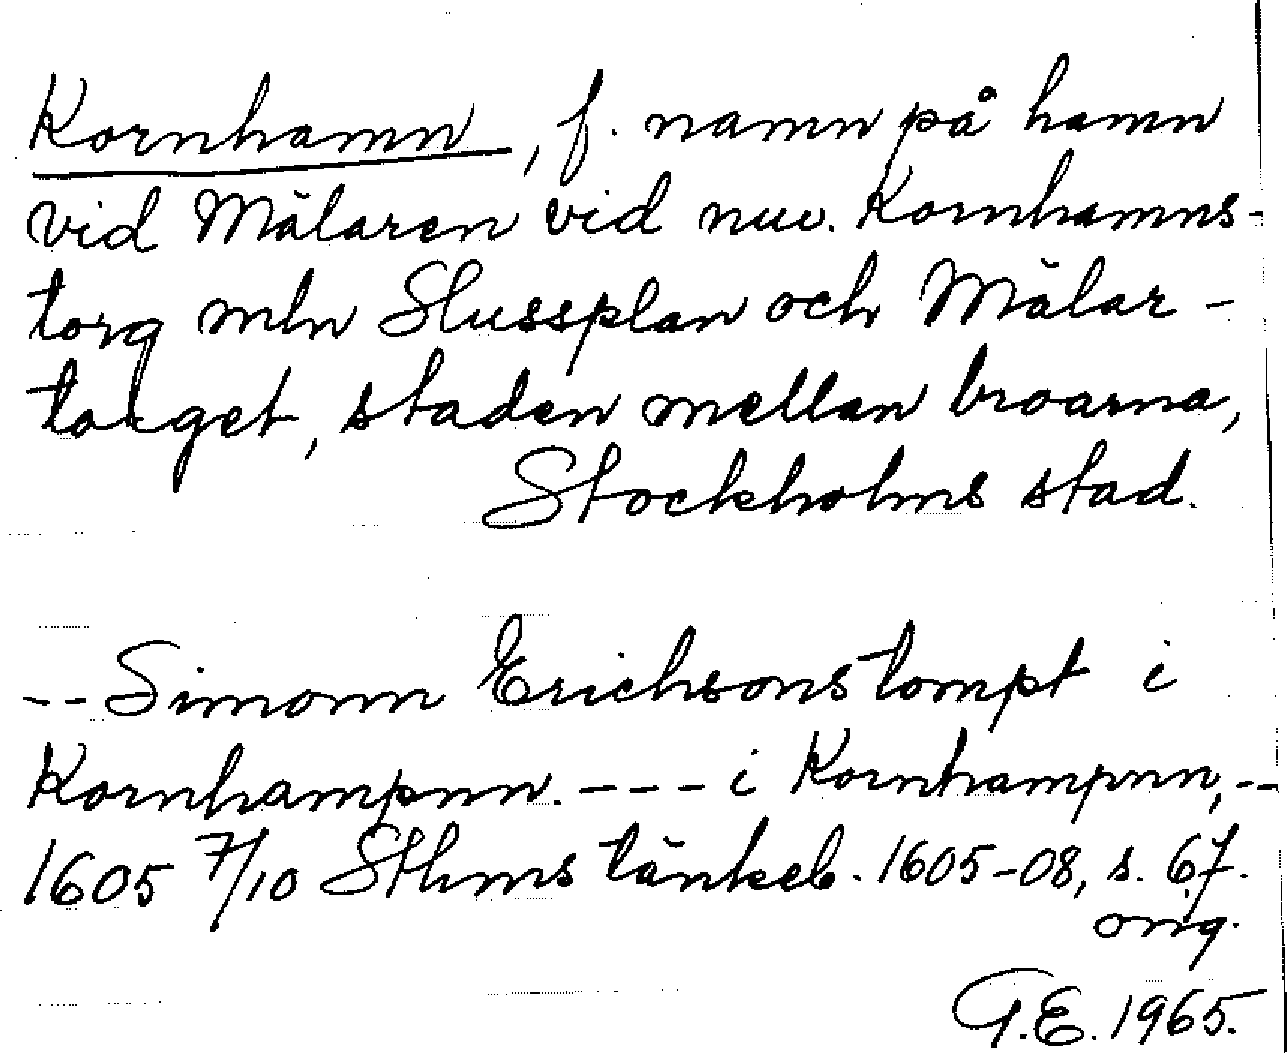 Kornhamn, f. namn på hamn
vid Mälaren vid nuv. Kornhamns-
torg mln Slussplan och Mälar-
torget, staden mellan broarna,
Stockholms stad.
-- Simonn Erichsons tompt i
Kornhampnn. --- i Kornhampnn, --
1605 7/10 Sthms tänkeb. 1605-08, s. 67.
orig.
G.E. 1965.